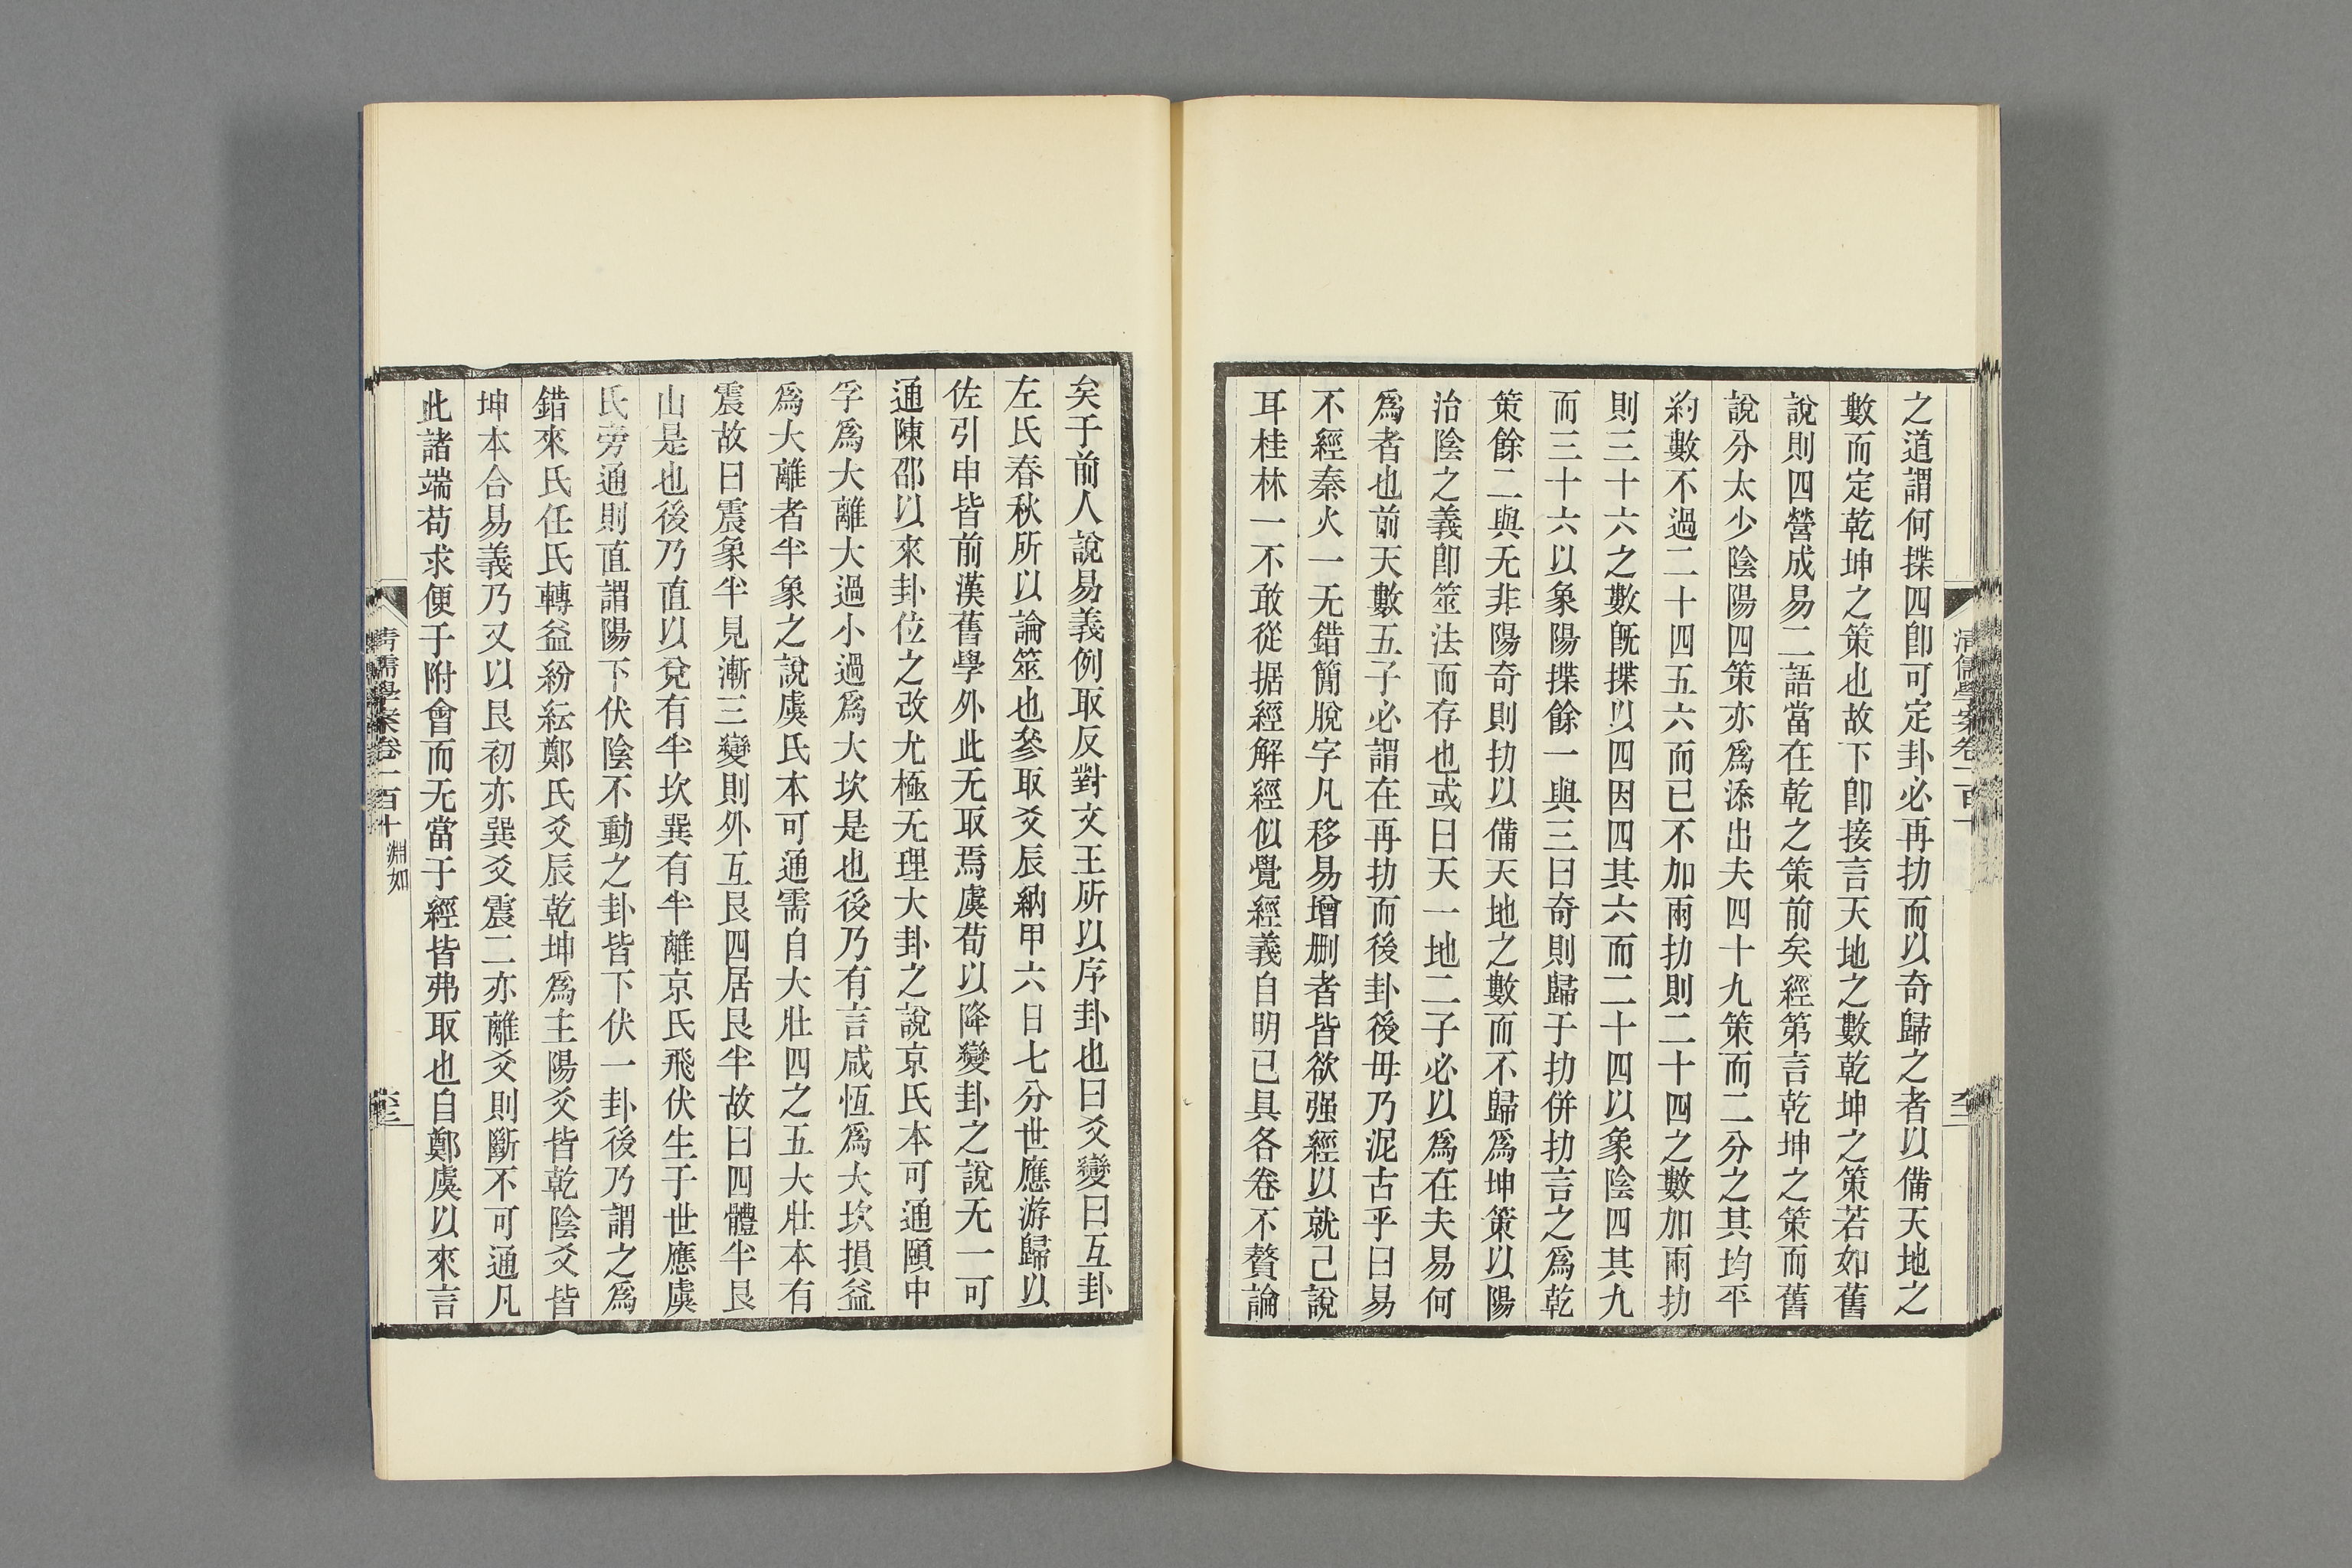 之道謂何揲四卽可定卦必再扐而以奇歸之者以備天地之
數而定乾坤之策也故下卽接言天地之數乾坤之策若如舊
說則四營成易二語當在乾之策前矣經第言乾坤之策而舊
說分太少陰陽四策亦爲添出夫四十九策而二分之其均平
約數不過二十四五六而已不加兩扐則二十四之數加兩扐
則三十六之數旣揲以四因四其六而二十四以象陰四其九
而三十六以象陽揲餘一與三曰奇則歸于扐併扐言之爲乾
策餘二與无非陽奇則扐以備天地之數而不歸爲坤策以陽
治陰之義卽筮法而存也或曰天一地二子必以爲在夫易何
爲者也前天數五子必謂在再扐而後卦後毋乃泥古乎曰易
不經秦火一无錯簡脫字凡移易增删者皆欲强經以就己說
耳桂林一不敢從据經解經似覺經義自明已具各卷不贅論
矣于前人說易義例取反對文王所以序卦也曰爻變曰互卦
左氏春秋所以論筮也參取爻辰納甲六日七分世應游歸以
佐引申皆前漢舊學外此无取焉虞荀以降變卦之說无一可
通陳邵以來卦位之改尤極无理大卦之說京氏本可通頤中
孚爲大離大過小過爲大坎是也後乃有言咸恆爲大坎損益
爲大離者半象之說虞氏本可通需自大壯四之五大壯本有
震故曰震象半見漸三變則外互艮四居艮半故曰四體半艮
山是也後乃直以兌有半坎巽有半離京氏飛伏生于世應虞
氏旁通則直謂陽下伏陰不動之卦皆下伏一卦後乃謂之爲
錯來氏任氏轉益紛紜鄭氏爻辰乾坤爲主陽爻皆乾陰爻皆
坤本合易義乃又以艮初亦巽爻震二亦離爻則斷不可通凡
此諸端苟求便于附會而无當于經皆弗取也自鄭虞以來言
清儒學案卷一百十 淵如